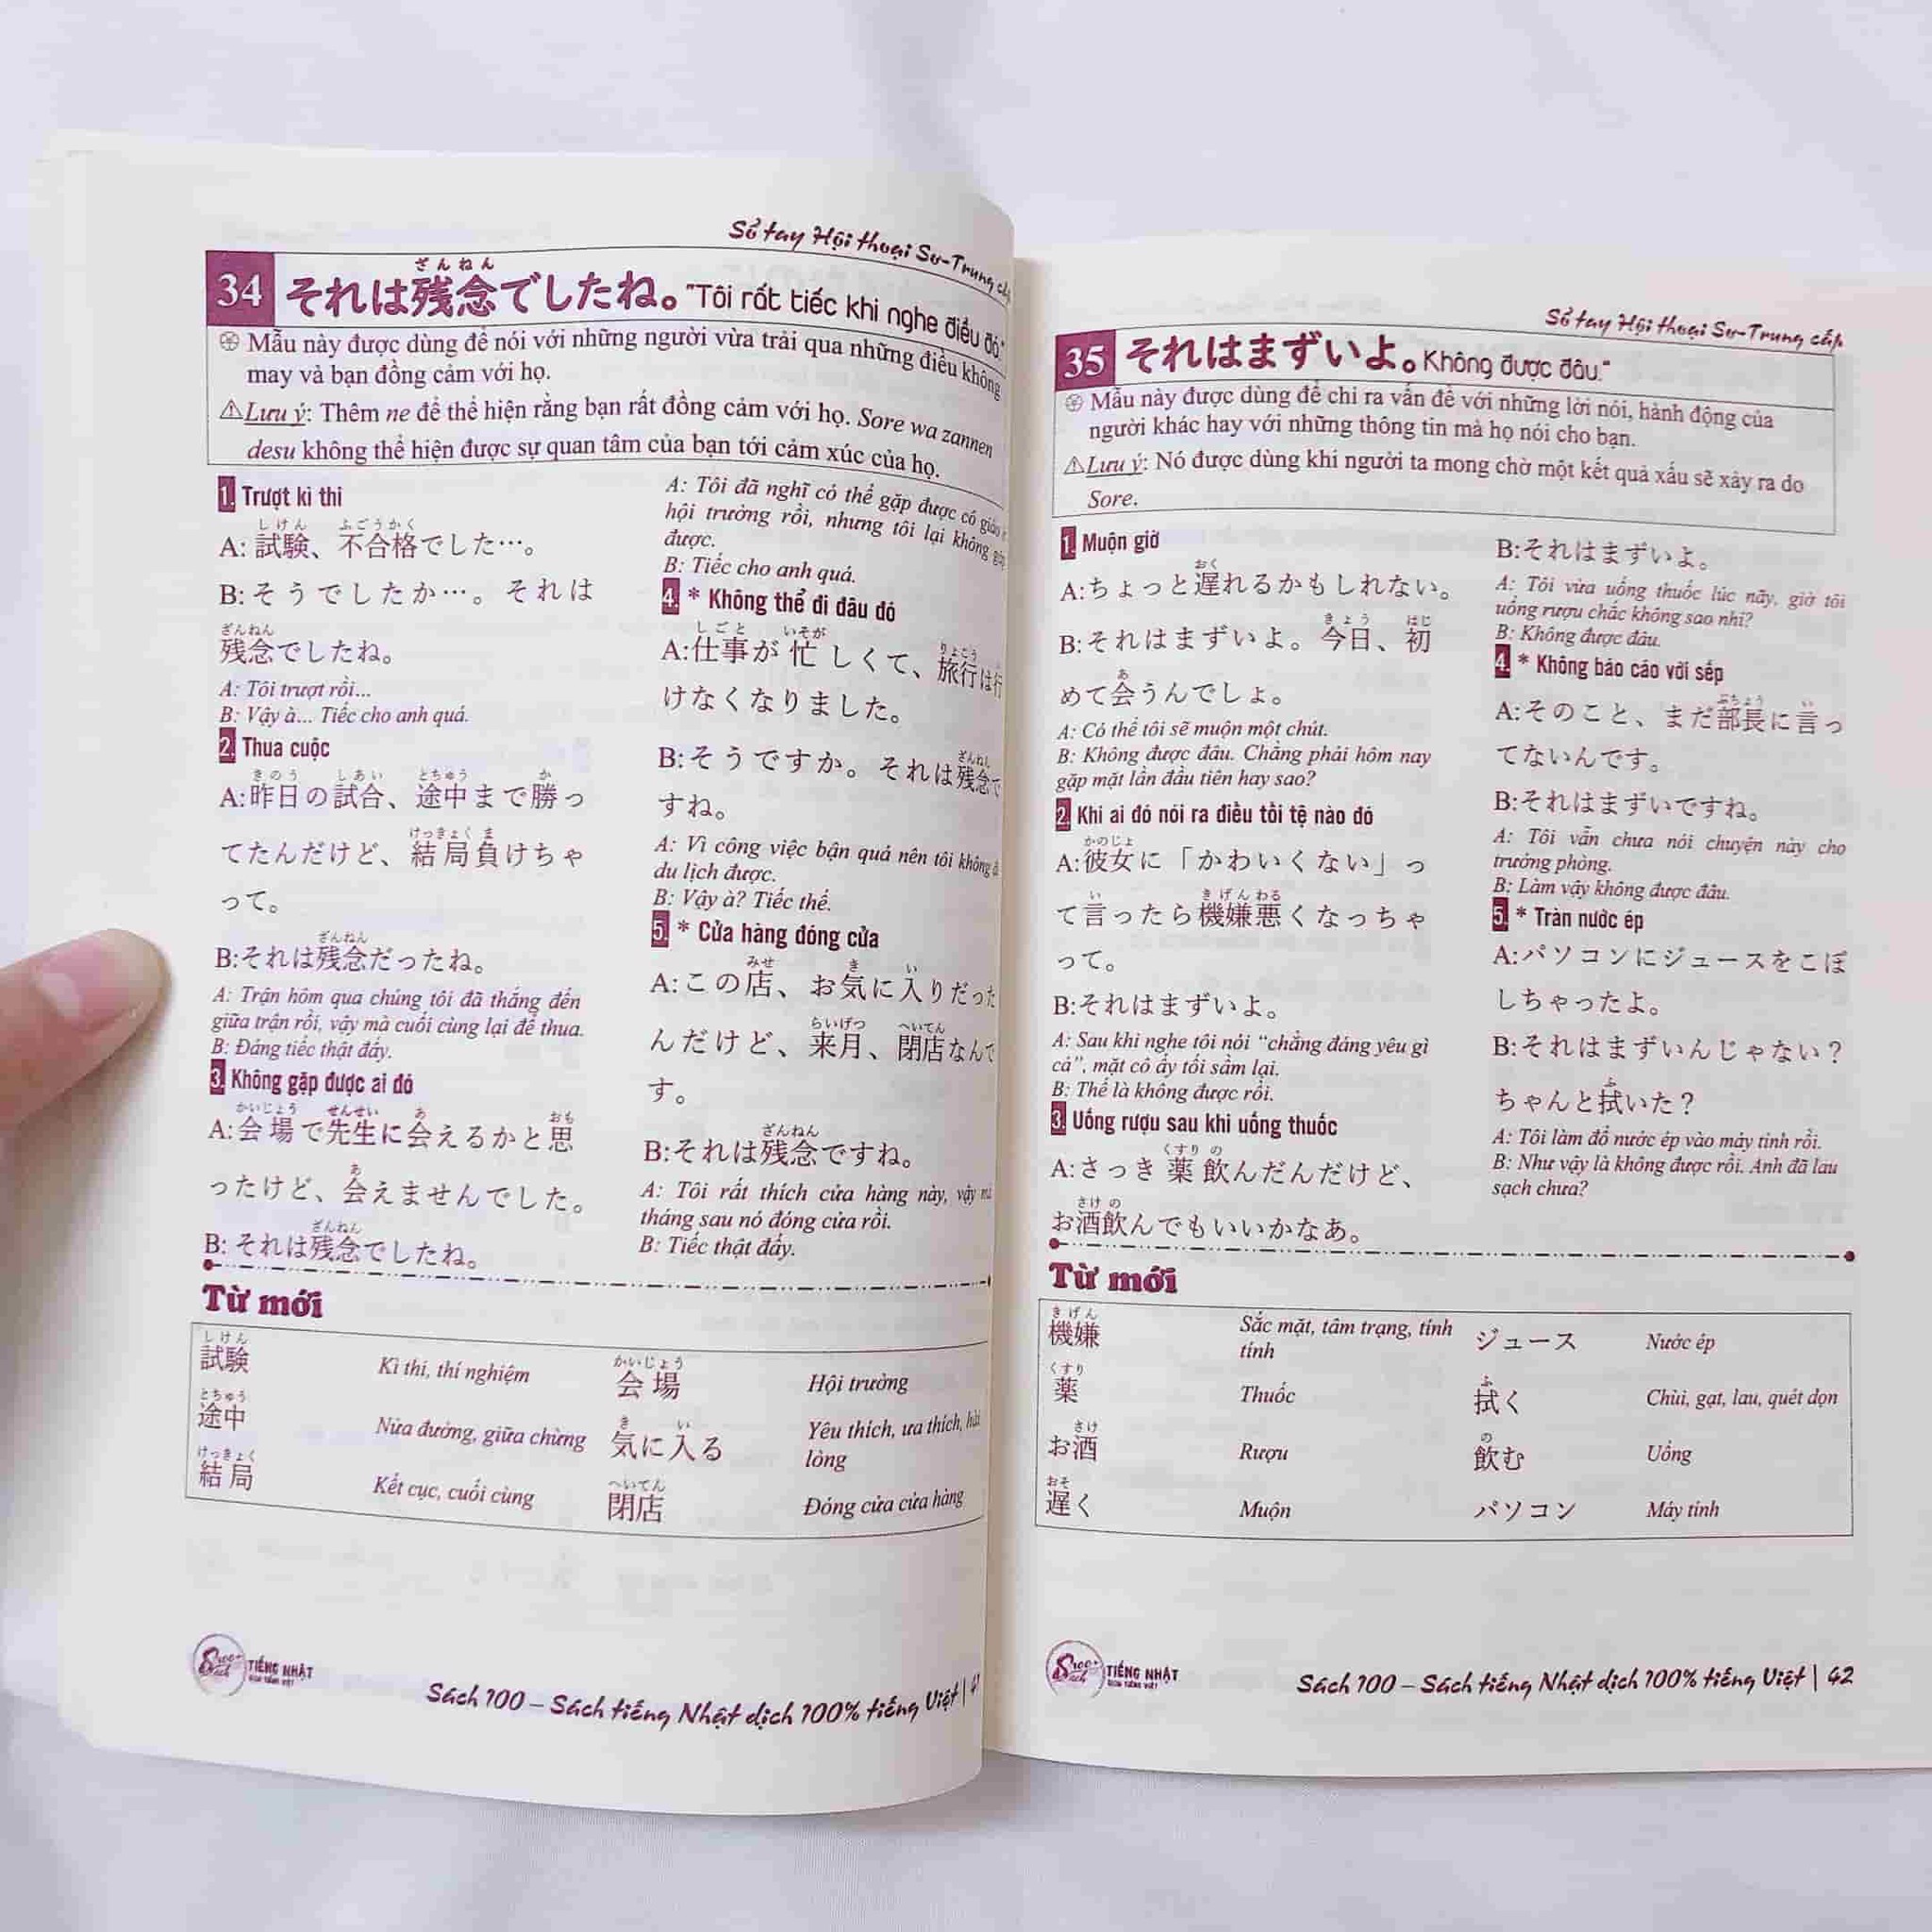 Sổ tay Hội thoại Sơ-Trung cấp
34 それは残念でしたね。"Tôi rất tiếc khi nghe điều đó."
ざんねん
Mẫu này được dùng để nói với những người vừa trải qua những điều không
may và bạn đồng cảm với họ.
Lưu ý: Thêm ne để thể hiện rằng bạn rất đồng cảm với họ. Sore wa zannen
desu không thể hiện được sự quan tâm của bạn tới cảm xúc của họ.
1. Trượt kì thi
しけん ふごうかく
A: 試験、不合格でした…。
B: そうでしたか…。それは
ざんねん
残念でしたね。
A: Tôi trượt rồi...
B: Vậy à... Tiếc cho anh quá.
2. Thua cuộc
きのう しあい とちゅう か
A:昨日の試合、途中まで勝っ
けっきょく ま
てたんだけど、結局負けちゃ
って。
ざんねん
B:それは残念だったね。
A: Trận hôm qua chúng tôi đã thắng đến
giữa trận rồi, vậy mà cuối cùng lại để thua.
B: Đáng tiếc thật đấy.
3. Không gặp được ai đó
かいじょう せんせい あ おも
A:会場で先生に会えるかと思
あ
ったけど、会えませんでした。
ざんねん
B: それは残念でしたね。
A: Tôi đã nghĩ có thể gặp được cô giáo
hội trường rồi, nhưng tôi lại không gặp
được.
B: Tiếc cho anh quá.
4. * Không thể đi đâu đó
しごと いそが りょこう
A:仕事が忙しくて、旅行は行
けなくなりました。
ざんねん
B:そうですか。それは残念で
すね。
A: Vì công việc bận quá nên tôi không
du lịch được.
B: Vậy à? Tiếc thế.
5. * Cửa hàng đóng cửa
みせ き い
A:この店、お気に入りだった
らいげつ へいてん
んだけど、来月、閉店なんで
す。
ざんねん
B:それは残念ですね。
A: Tôi rất thích cửa hàng này, vậy mà
tháng sau nó đóng cửa rồi.
B: Tiếc thật đấy.
Từ mới
しけん
試験 Kì thi, thí nghiệm
かいじょう
会場 Hội trường
とちゅう
途中 Nửa đường, giữa chừng
き い
気に入る Yêu thích, ưa thích, hài
lòng
けっきょく
結局 Kết cục, cuối cùng
へいてん
閉店 Đóng cửa cửa hàng
Sách 100 TIẾNG NHẬT
Sách 100 – Sách tiếng Nhật dịch 100% tiếng Việt | 41
Sổ tay Hội thoại Sơ-Trung cấp
35 それはまずいよ。Không được đâu."
Mẫu này được dùng để chỉ ra vấn đề với những lời nói, hành động của
người khác hay với những thông tin mà họ nói cho bạn.
Lưu ý: Nó được dùng khi người ta mong chờ một kết quả xấu sẽ xảy ra do
Sore.
1. Muộn giờ
おく
A:ちょっと遅れるかもしれない。
きょう はじ
B:それはまずいよ。今日、初
あ
めて会うんでしょ。
A: Có thể tôi sẽ muộn một chút.
B: Không được đâu. Chẳng phải hôm nay
gặp mặt lần đầu tiên hay sao?
2. Khi ai đó nói ra điều tồi tệ nào đó
かのじょ
A:彼女に「かわいくない」っ
い きげんわる
て言ったら機嫌悪くなっちゃ
って。
B:それはまずいよ。
A: Sau khi nghe tôi nói "chẳng đáng yêu gì
cả", mặt cô ấy tối sầm lại.
B: Thế là không được rồi.
3. Uống rượu sau khi uống thuốc
くすり の
A:さっき薬飲んだんだけど、
さけ の
お酒飲んでもいいかなあ。
B:それはまずいよ。
A: Tôi vừa uống thuốc lúc nãy, giờ tôi
uống rượu chắc không sao nhỉ?
B: Không được đâu.
4. * Không báo cáo với sếp
ぶちょう い
A:そのこと、まだ部長に言っ
てないんです。
B:それはまずいですね。
A: Tôi vẫn chưa nói chuyện này cho
trưởng phòng.
B: Làm vậy không được đâu.
5. * Tràn nước ép
A:パソコンにジュースをこぼ
しちゃったよ。
B:それはまずいんじゃない？
ふ
ちゃんと拭いた？
A: Tôi làm đổ nước ép vào máy tính rồi.
B: Như vậy là không được rồi. Anh đã lau
sạch chưa?
Từ mới
きげん
機嫌 Sắc mặt, tâm trạng, tính
tính
ジュース Nước ép
くすり
薬 Thuốc
ふ
拭く Chùi, gạt, lau, quét dọn
さけ
お酒 Rượu
の
飲む Uống
おそ
遅く Muộn
パソコン Máy tính
Sách 100 TIẾNG NHẬT
Sách 100 – Sách tiếng Nhật dịch 100% tiếng Việt | 42